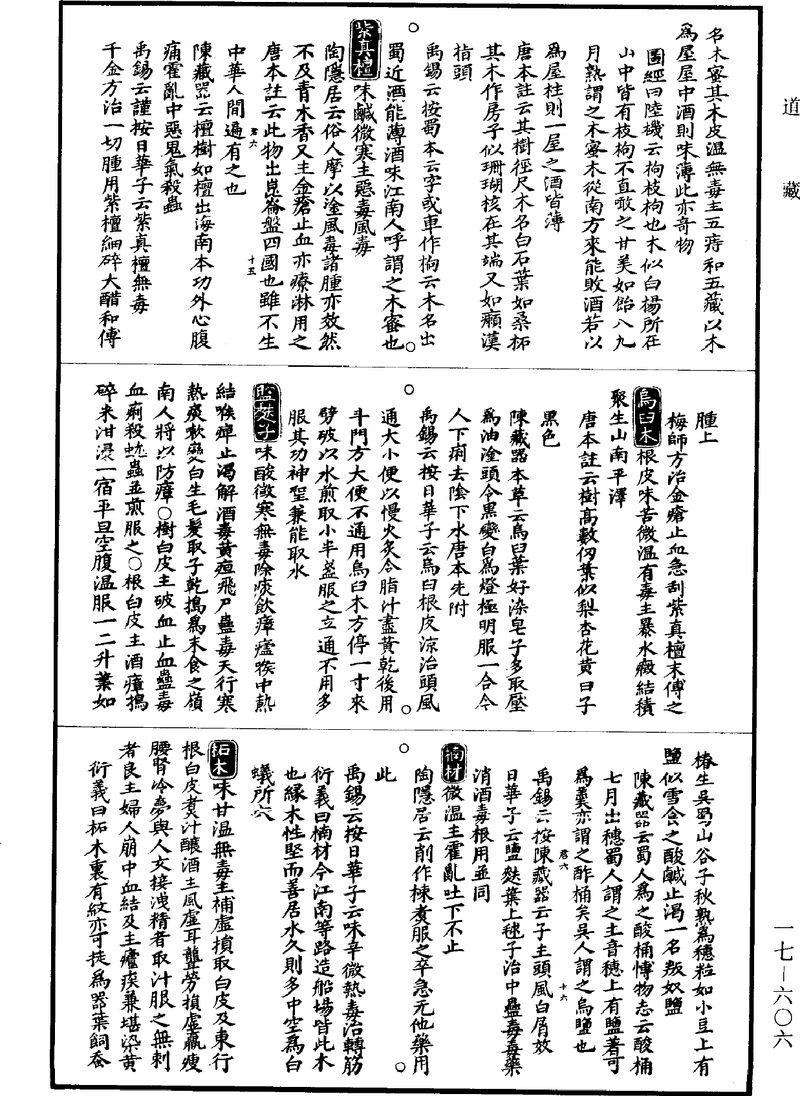 道藏
名木蜜其木皮溫無毒主五痔和五藏以木
爲屋屋中酒則味薄此亦奇物
圖經曰陸機云枸枝枸也木似白楊所在
山中皆有枝枸不直噉之甘美如飴八九
月熟謂之木蜜木從南方來能敗酒若以
爲屋柱則一屋之酒皆薄
唐本註云其樹徑尺木名白石葉如桑柘
其木作房子似珊瑚核在其端又如癩漢
指頭
禹錫云按蜀本云字或車作枸云木名出
蜀近酒能薄酒味江南人呼謂之木蜜也
紫真檀味鹹微寒主惡毒風毒
陶隱居云俗人摩以塗風毒諸腫亦效然
不及青木香又主金瘡止血亦療淋用之
唐本註云此物出崑崙盤四國也雖不生
君六 十五
中華人間遍有之也
陳藏器云檀樹如檀出海南本功外心腹
痛霍亂中惡鬼氣殺蟲
禹錫云謹按日華子云紫真檀無毒
千金方治一切腫用紫檀細碎大醋和傅
腫上
梅師方治金瘡止血急刮紫真檀末傅之
烏臼木根皮味苦微溫有毒主暴水癥結積
聚生山南平澤
唐本註云樹高數仞葉似梨杏花黃白子
黑色
陳藏器本草云烏臼葉好染皂子多取壓
爲油塗頭令黑變白爲燈極明服一合令
人下痢去陰下水唐本先附
禹錫云按日華子云烏臼根皮涼治頭風
通大小便以慢火炙令脂汁盡黃乾後用
斗門方大便不通用烏臼木方停一寸來
劈破以水煎取小半盞服之立通不用多
服其功神聖兼能取水
鹽麩子味酸微寒無毒除痰飲瘴瘧喉中熱
結喉痺止渴解酒毒黃疸飛尸蠱毒天行寒
熱痰嗽變白生毛髮取子乾搗爲末食之嶺
南人將以防瘴○樹白皮主破血止血蠱毒
血痢殺蚘蟲並煎服之○根白皮主酒瘴搗
碎米泔浸一宿平旦空腹溫服一二升葉如
椿生吳蜀山谷子秋熟爲穗粒如小豆上有
鹽似雪食之酸鹹止渴一名叛奴鹽
陳藏器云蜀人爲之酸桶博物志云酸桶
七月出穗蜀人謂之主音穗上有鹽著可
爲羹亦謂之酢桶矣吳人謂之烏鹽也
君六 十六
禹錫云按陳藏器云子主頭風白屑效
日華子云鹽麩葉上毬子治中蠱毒毒藥
消酒毒根用並同
楠材微溫主霍亂吐下不止
陶隱居云削作柹煑服之卒急无他藥用
此
禹錫云按日華子云味辛微熱毒治轉筋
衍義曰楠材今江南等路造船場皆此木
也緣木性堅而善居水久則多中空爲白
蟻所穴
柘木味甘溫無毒主補虛損取白皮及東行
根白皮煑汁釀酒主風虛耳聾勞損虛羸瘦
腰腎冷夢與人交接洩精者取汁服之無刺
者良主婦人崩中血結及主瘧疾兼堪染黃
衍義曰柘木裏有紋亦可旋爲器葉飼蚕
一七—六〇六